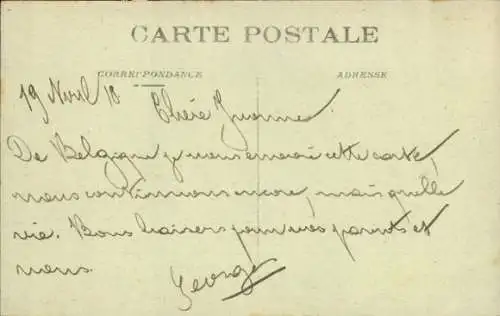 CARTE POSTALE
CORRESPONDANCE ADRESSE
19 Novb 18 Chère Yvonne.
De Belgique je vous envoie cette carte,
nous continuons encore, mais quelle
vie. Bons baisers pour vos parents et
vous.
Georges